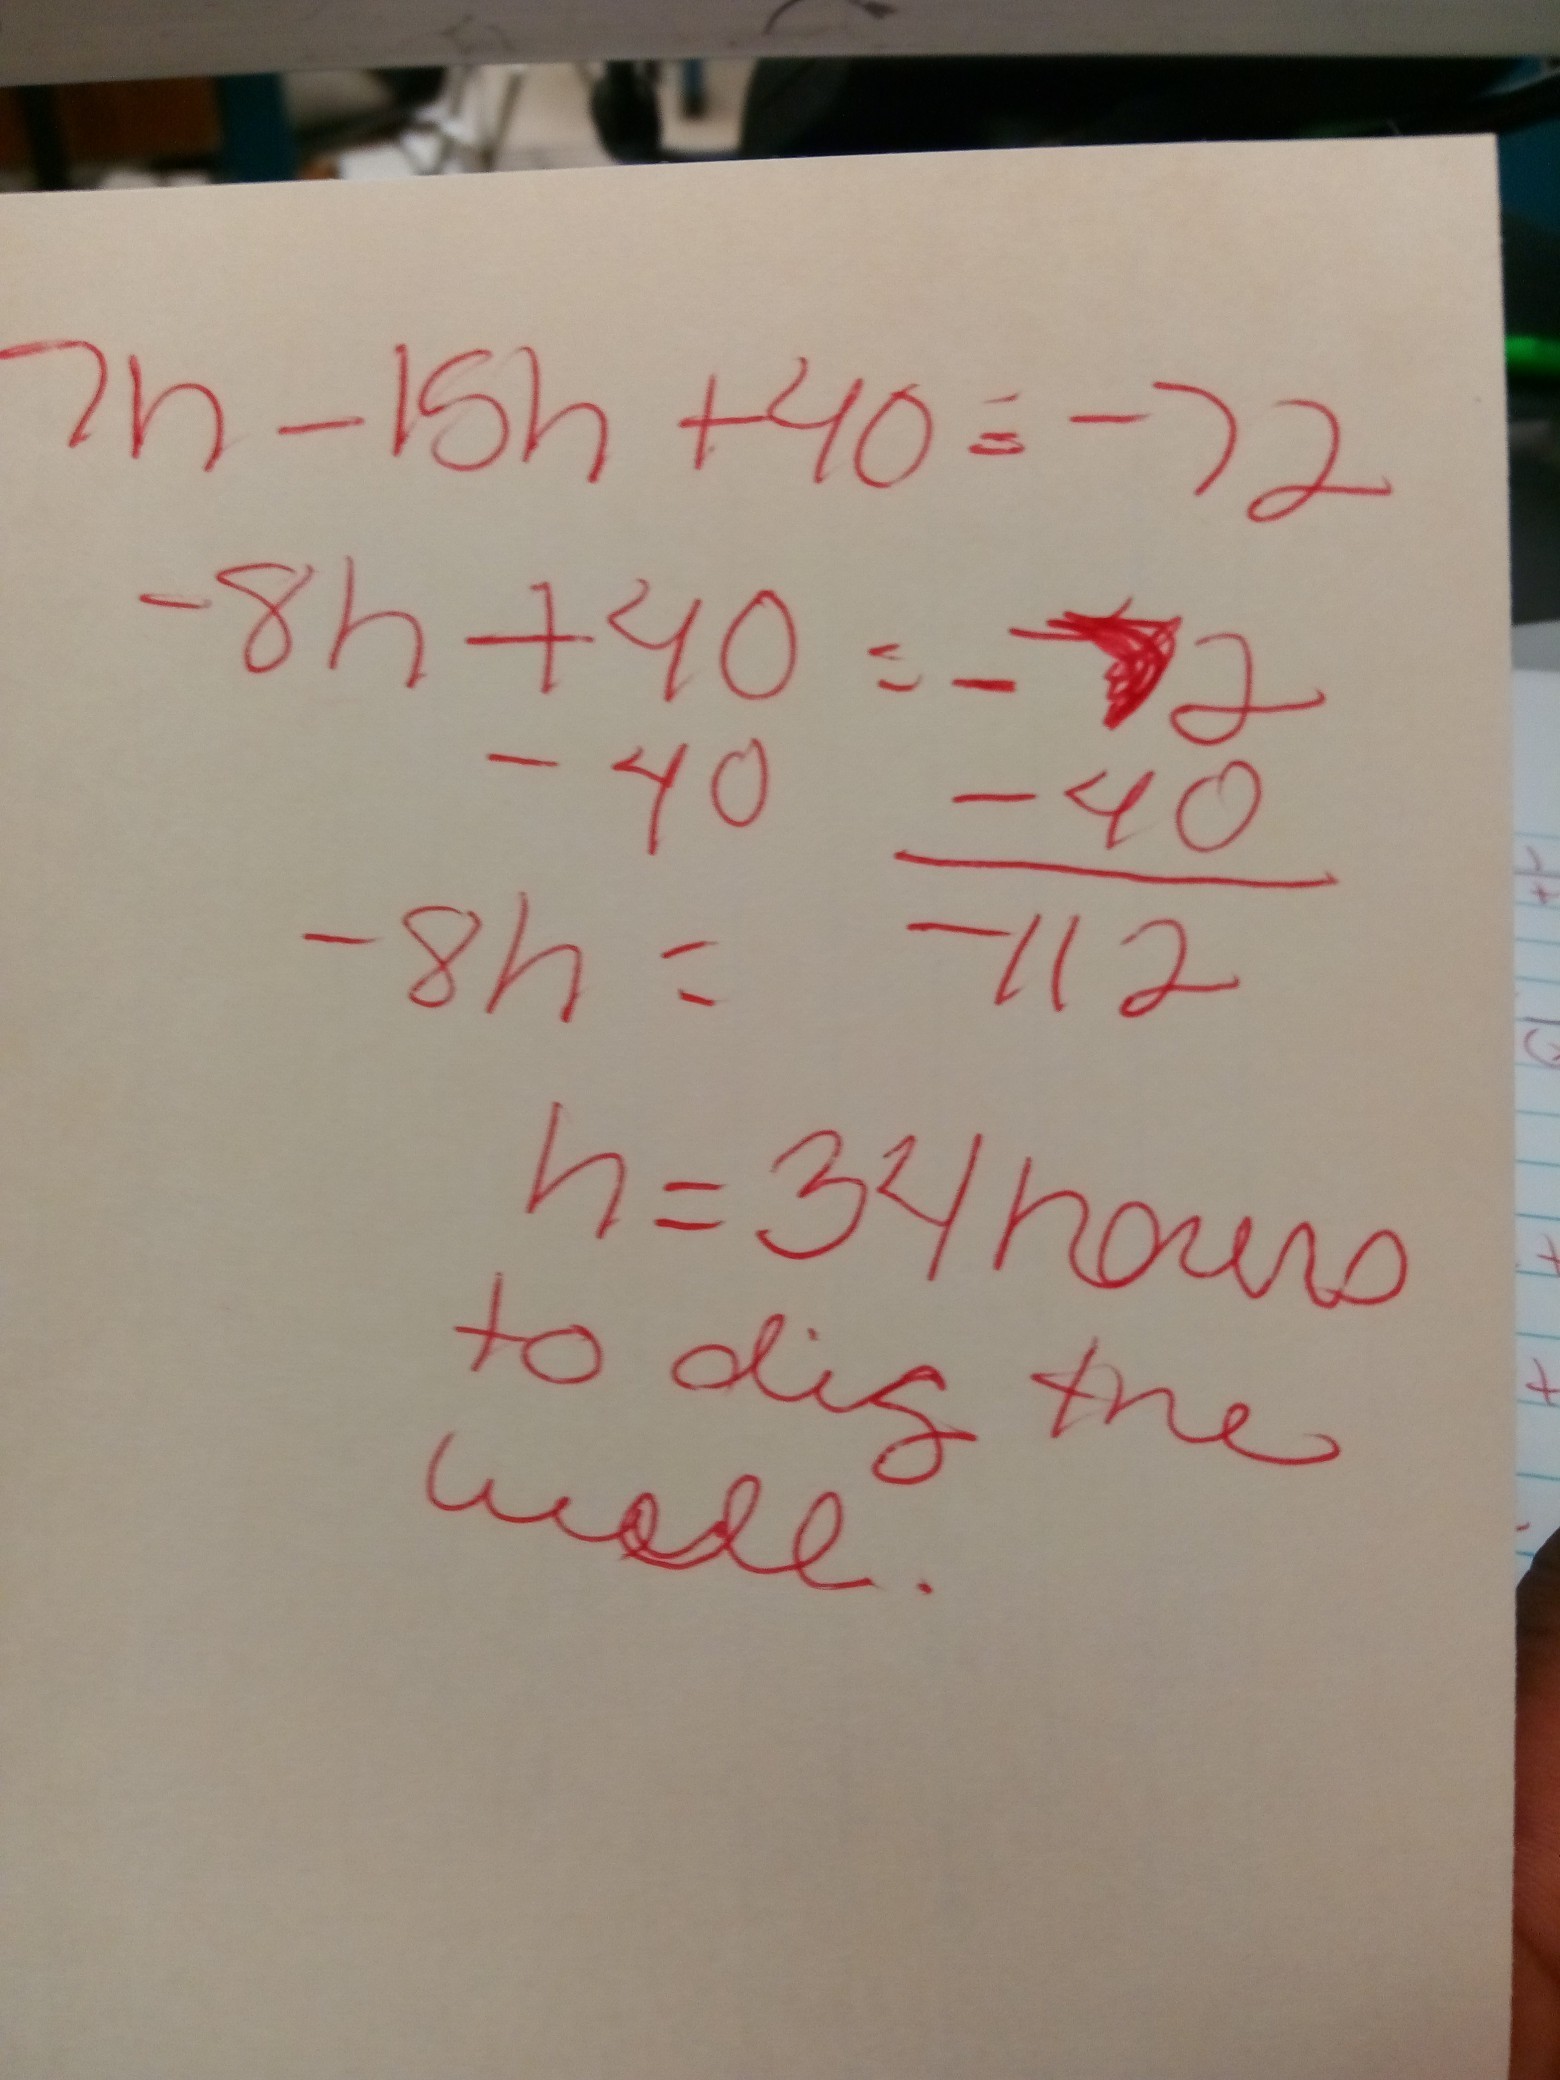 7h - 15h + 40 = -72
-8h + 40 = -72
- 40 - 40
-8h = -112
h = 34 hours
to dig the
well.